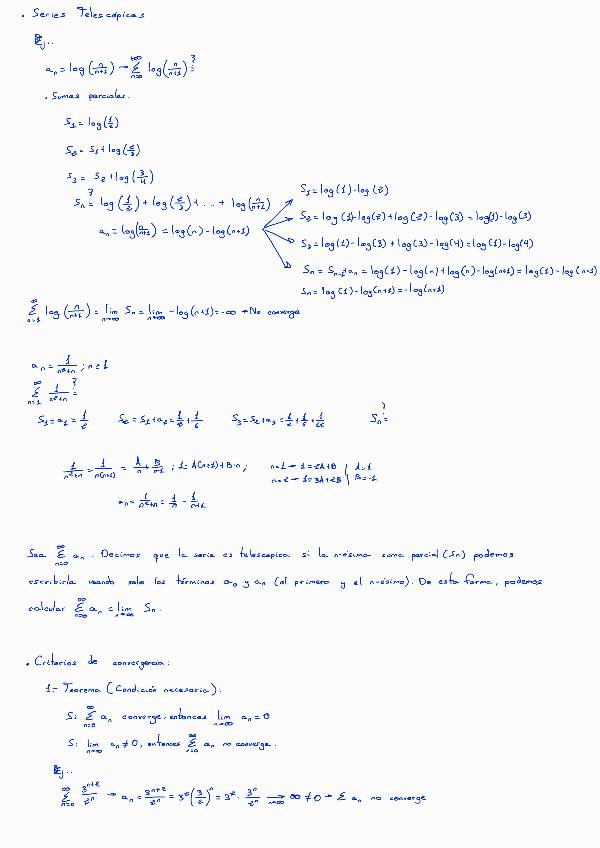 • Series Telescópicas
Ej..
aₙ = log(n/(n+1)) → ∑_{n=0}^{+∞} log(n/(n+1)) =?
• Sumas parciales.
S₁ = log(1/2)
S₂ = S₁ + log(2/3)
S₃ = S₂ + log(3/4)
Sₙ =? log(1/2) + log(2/3) + ... + log(n/(n+1))
aₙ = log(n/(n+1)) = log(n) - log(n+1)
S₁ = log(1) - log(2)
S₂ = log(1) - log(2) + log(2) - log(3) = log(1) - log(3)
S₃ = log(1) - log(3) + log(3) - log(4) = log(1) - log(4)
Sₙ = Sₙ₋₁ + aₙ = log(1) - log(n) + log(n) - log(n+1) = log(1) - log(n+1)
Sₙ = log(1) - log(n+1) = -log(n+1)
∑_{n=1}^{∞} log(n/(n+1)) = lim_{n→∞} Sₙ = lim_{n→∞} -log(n+1) = -∞ → No converge
aₙ = 1/(n²+n) ; n ≥ 1
∑_{n=1}^{∞} 1/(n²+n) =?
S₁ = a₁ = 1/2 S₂ = S₁ + a₂ = 1/2 + 1/6 S₃ = S₂ + a₃ = 1/2 + 1/6 + 1/12 Sₙ =?
1/(n²+n) = 1/(n(n+1)) = A/n + B/(n+1) ; 1 = A(n+1) + B·n ; n=1 → 1 = 2A+B | A=1
n=2 → 1 = 3A+2B | B=-1
aₙ = 1/(n²+n) = 1/n - 1/(n+1)
Sea ∑_{n=0}^{∞} aₙ. Decimos que la serie es telescópica si la n-ésima suma parcial (Sn) podemos
escribirla usando solo los términos a₀ y aₙ (el primero y el n-ésimo). De esta forma, podemos
calcular ∑_{n=0}^{∞} aₙ = lim_{n→∞} Sₙ.
• Criterios de convergencia:
1- Teorema (Condición necesaria):
Si ∑_{n=0}^{∞} aₙ converge, entonces lim_{n→∞} aₙ = 0
Si lim_{n→∞} aₙ ≠ 0, entonces ∑_{n=0}^{∞} aₙ no converge.
Ej..
∑_{n=0}^{∞} 3ⁿ⁺²/2ⁿ → aₙ = 3ⁿ⁺²/2ⁿ = 3²(3/2)ⁿ = 3² · 3ⁿ/2ⁿ →_{n→∞} ∞ ≠ 0 → ∑ aₙ no converge